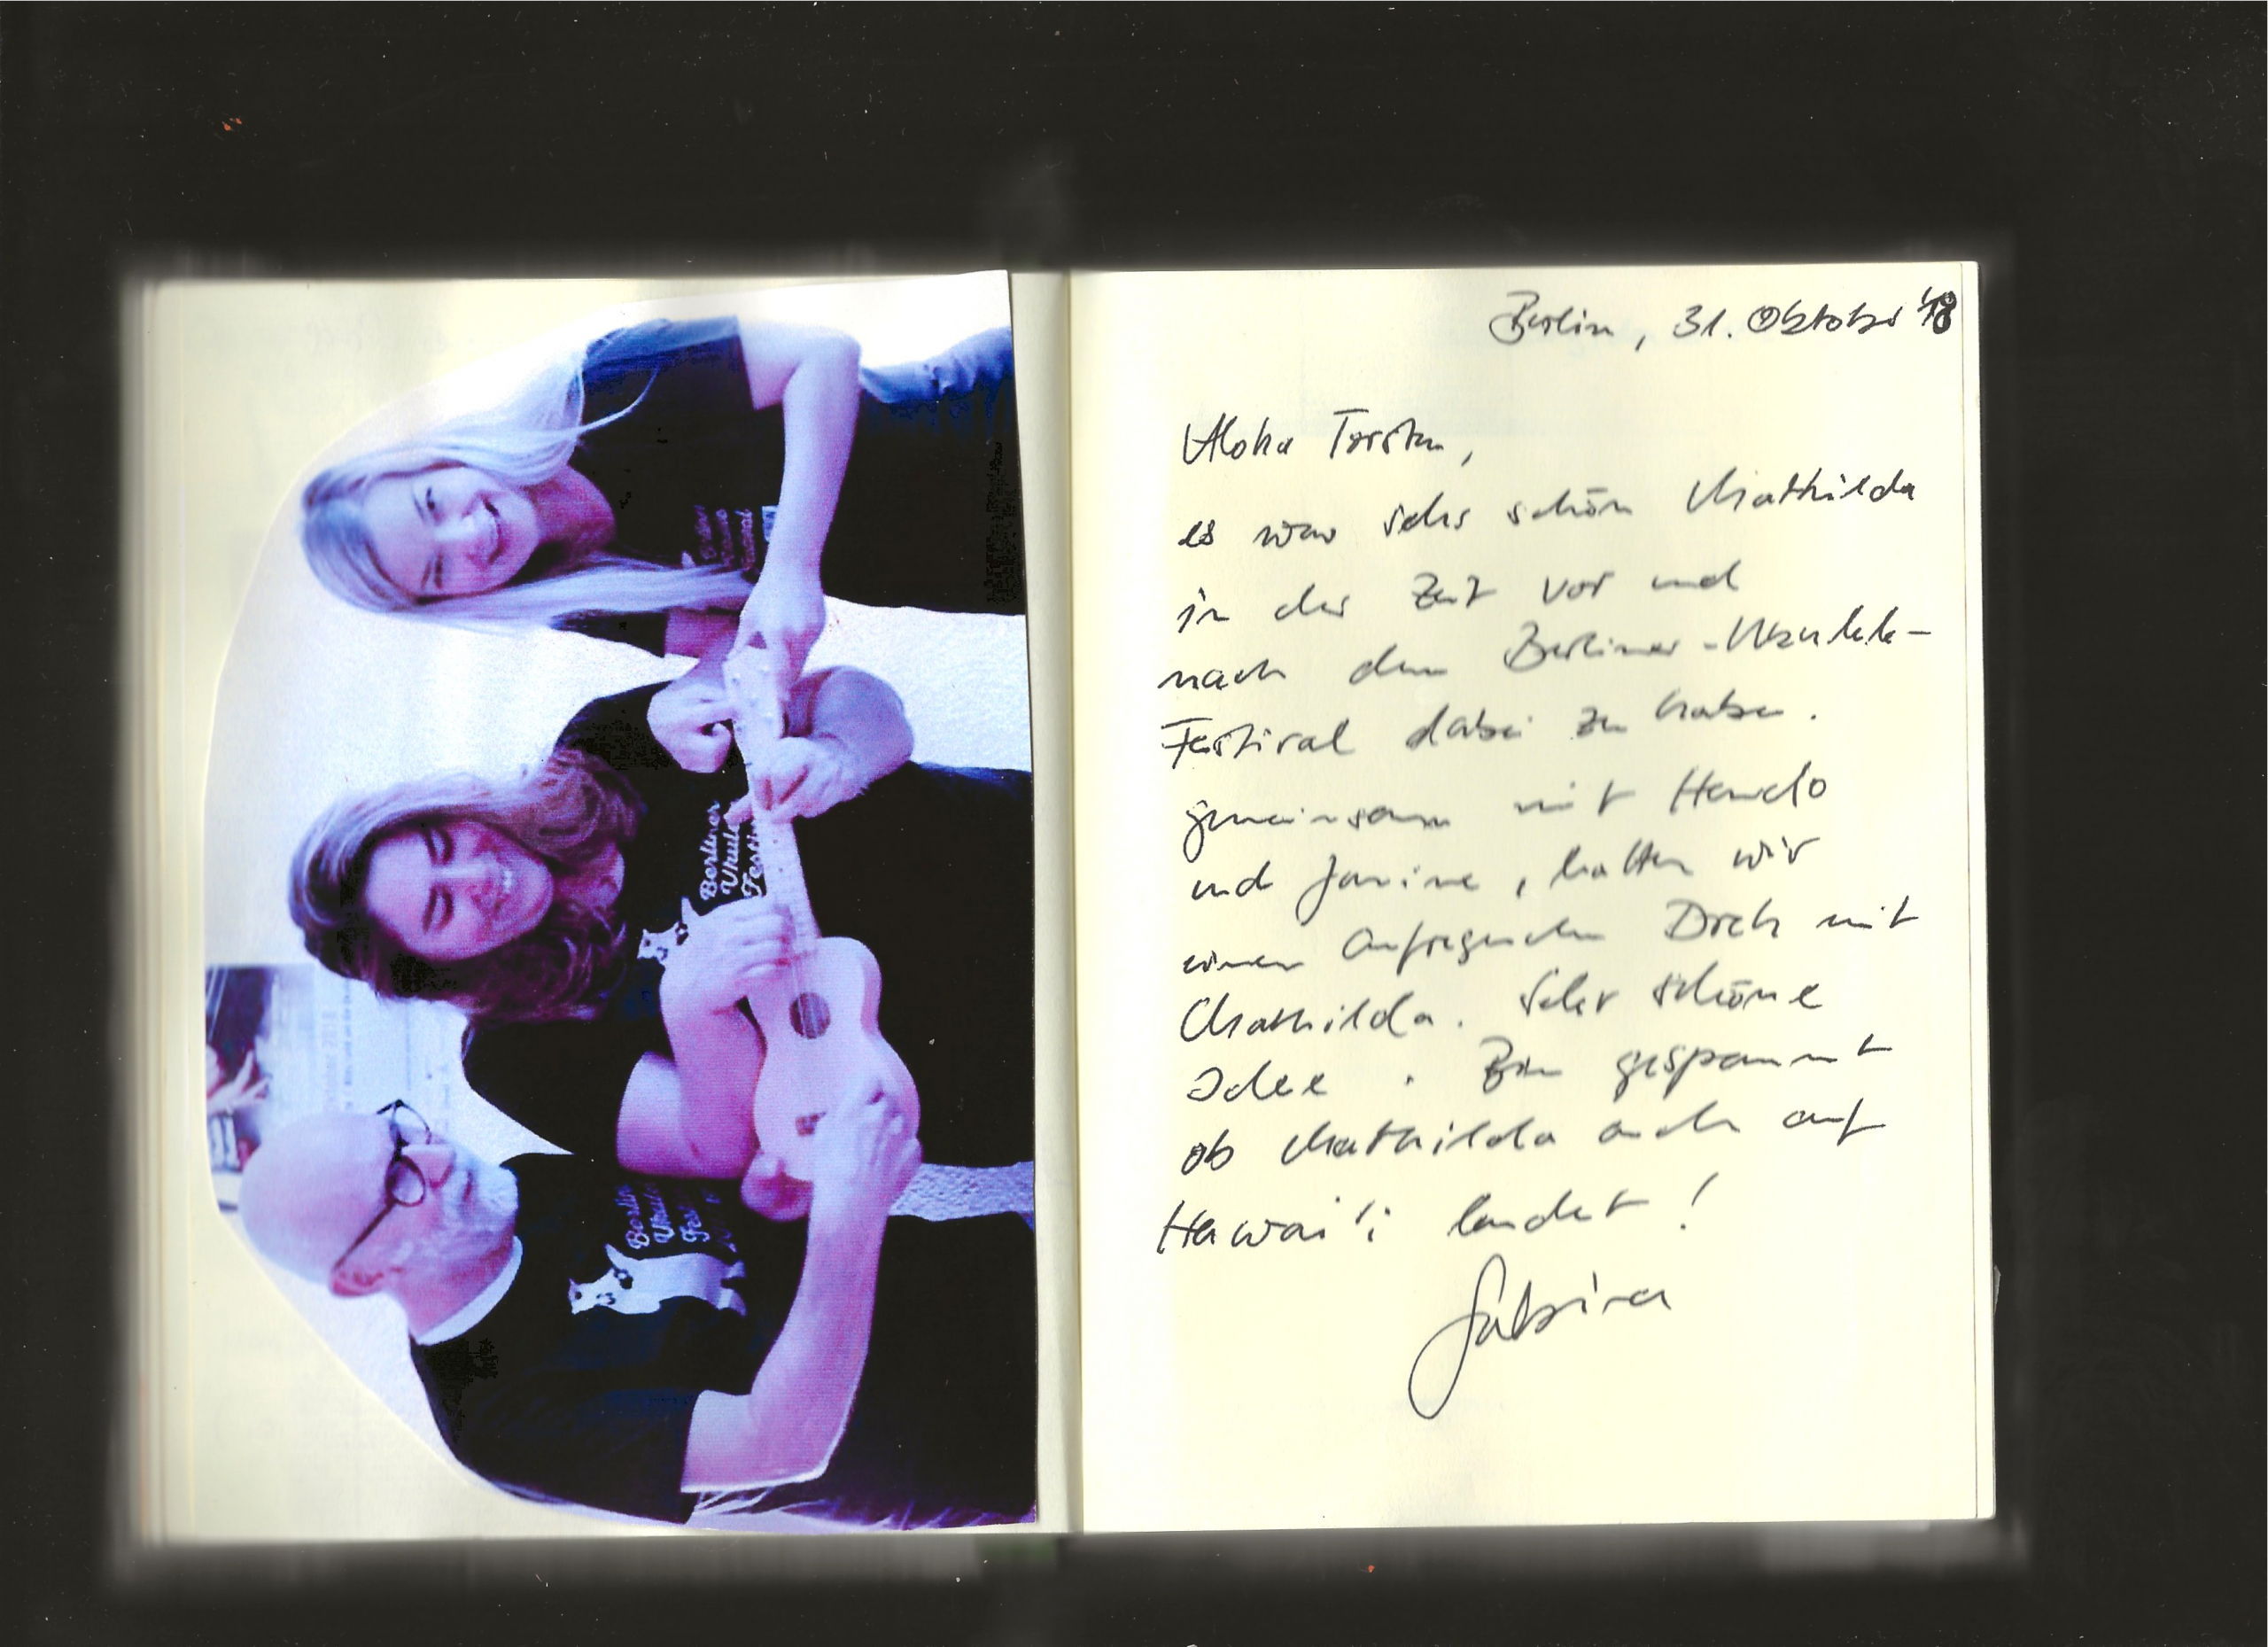 Berliner
Ukule
Festiv
Berlin
Ukule
Fes
Berlin, 31. Oktober '18
Aloha Torsten,
es war sehr schön Mathilda
in der Zeit vor und
nach dem Berliner-Ukulele-
Festival dabei zu haben.
gemeinsam mit
und Janine, hatten wir
einen aufregenden Dreh mit
Mathilda. Sehr schöne
Idee. Bin gespannt
ob Mathilda auch auf
Hawai'i landet!
Sabrina